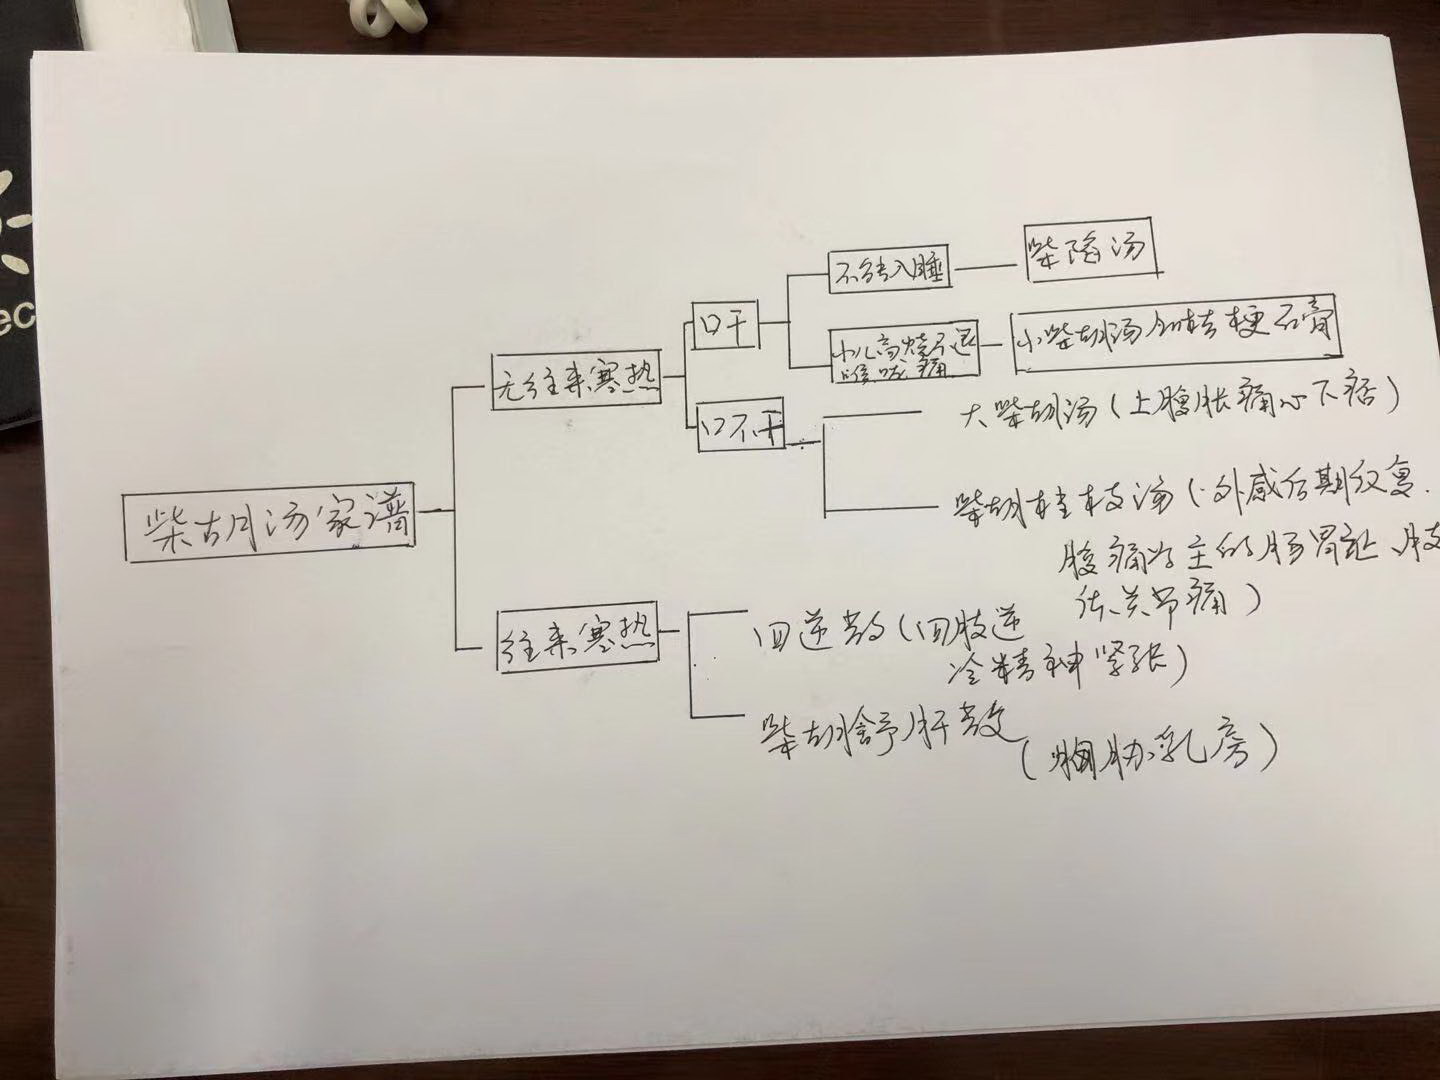 不能入睡
柴陷汤
口干
小儿高烧不退
喉咙痛
小柴胡汤加桔梗石膏
无往来寒热
口不干
大柴胡汤(上腹胀痛心下痞)
柴胡汤家谱
柴胡桂枝汤(外感后期反复.
腹痛为主的肠胃症、肢
体关节痛)
往来寒热
四逆散(四肢逆
冷精神紧张)
柴胡舒肝散
(胸胁、乳房)
ec